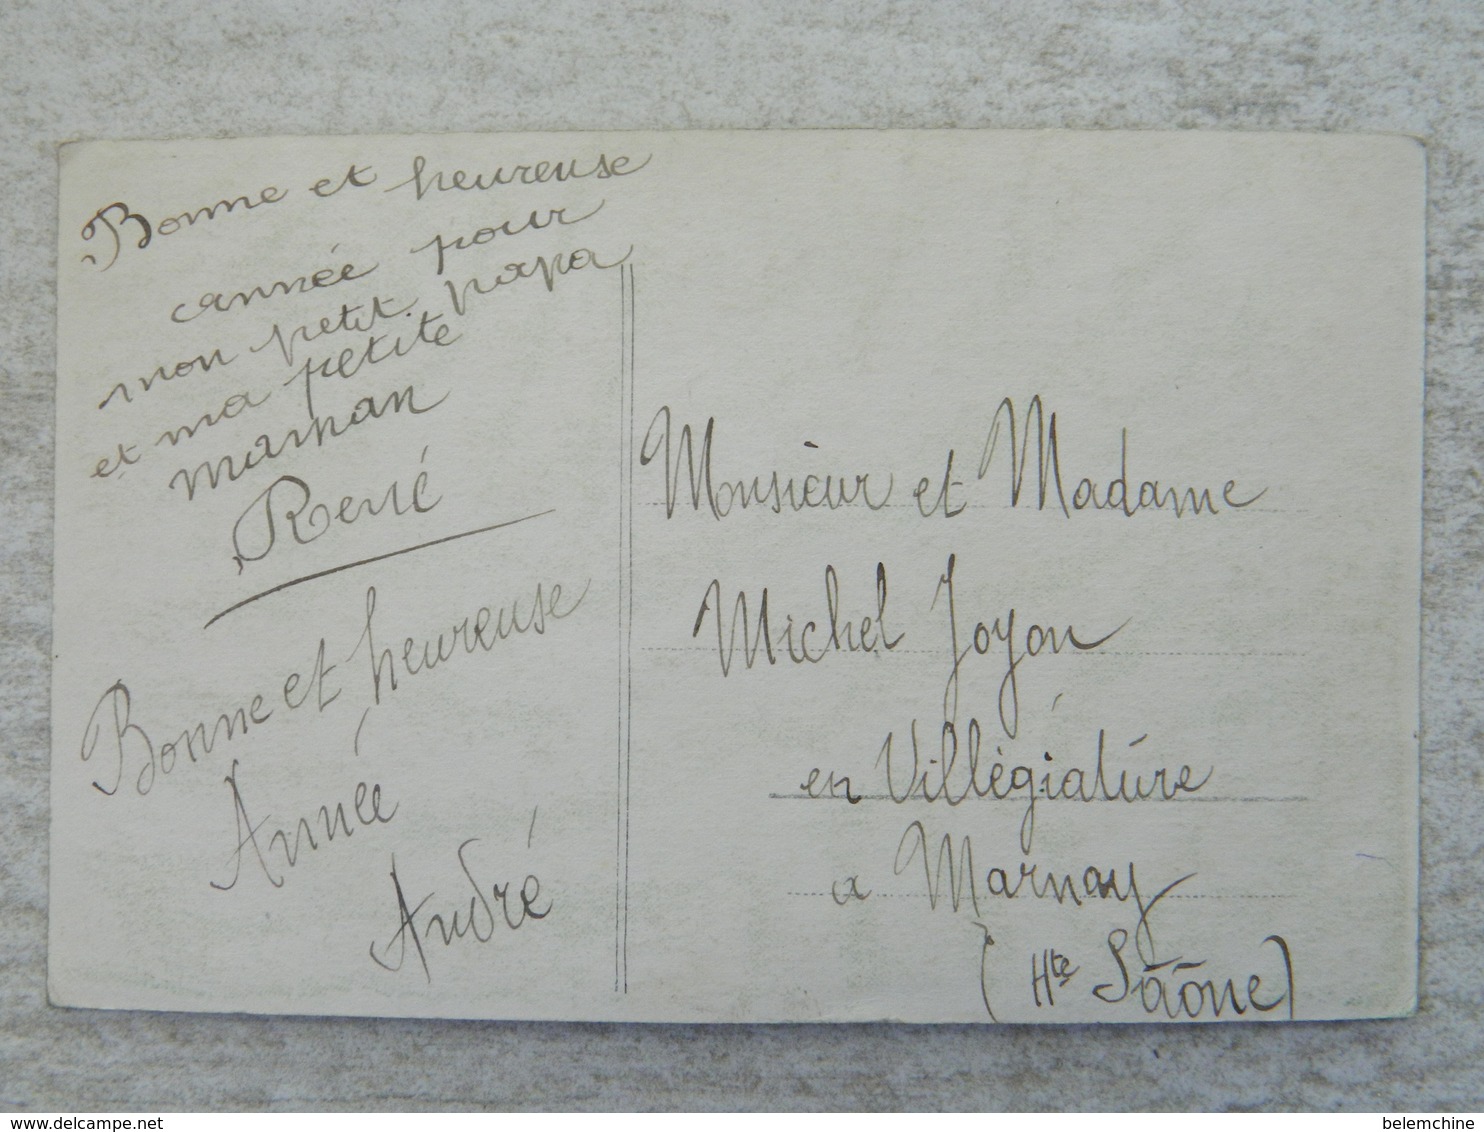 Bonne et heureuse
année pour
mon petit papa
et ma petite
maman
René
Bonne et heureuse
Année
André
Monsieur et Madame
Michel Joyon
en Villégiature
a Marnay
(Hte Saône)
delcampe.net
belemchine